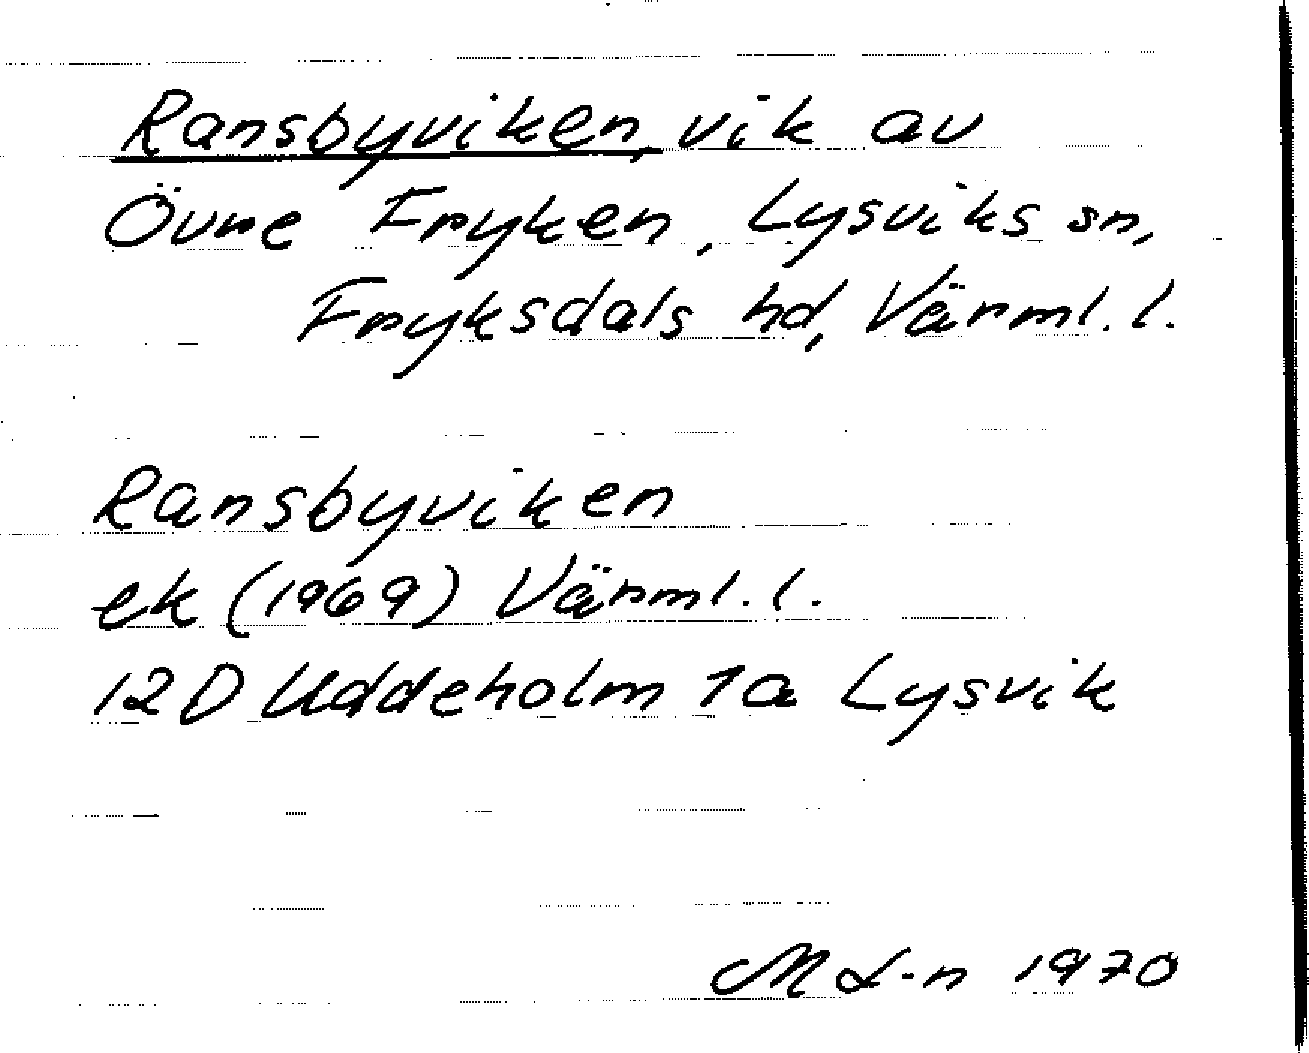 Ransbyviken, vik av
Övre Fryken, Lysviks sn,
Fryksdals hd, Värml. l.
Ransbyviken
ek (1969) Värml. l.
12D Uddeholm 1a Lysvik
M L-n 1970